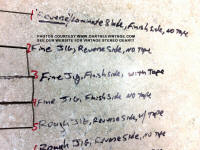 1 Reverse Laminate Slate, Finish side, no tape
PHOTOS COURTESY WWW.OAKTREEVINTAGE.COM
SEE OUR WEBSITE FOR VINTAGE STEREO GEAR!!!
2 Fine Jig, Reverse Side, no tape
3 Fine Jig, Finish side, with Tape
4 Fine Jig, Finish Side no tape
5 Rough Jig, Reverse Side, w/ Tape
Rough Jig, Reverse Side, no Tape